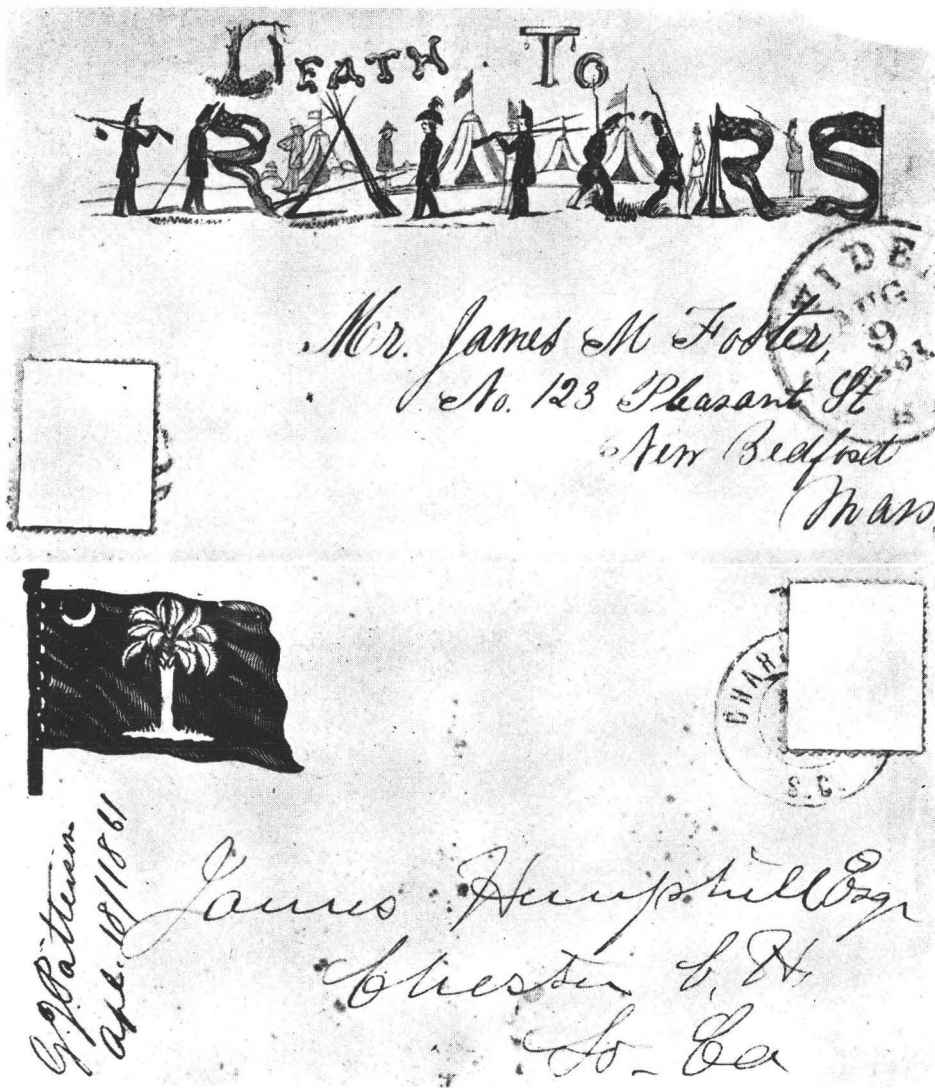 DEATH TO
TRAITORS
AUG
9
Mr. James M Foster,
No. 123 Pleasant St
New Bedford
Mass.
CHAR
S.C.
G J Patterson
Apl. 18/1861
James Hemphill Esqr
Chester C. H
So. Ca